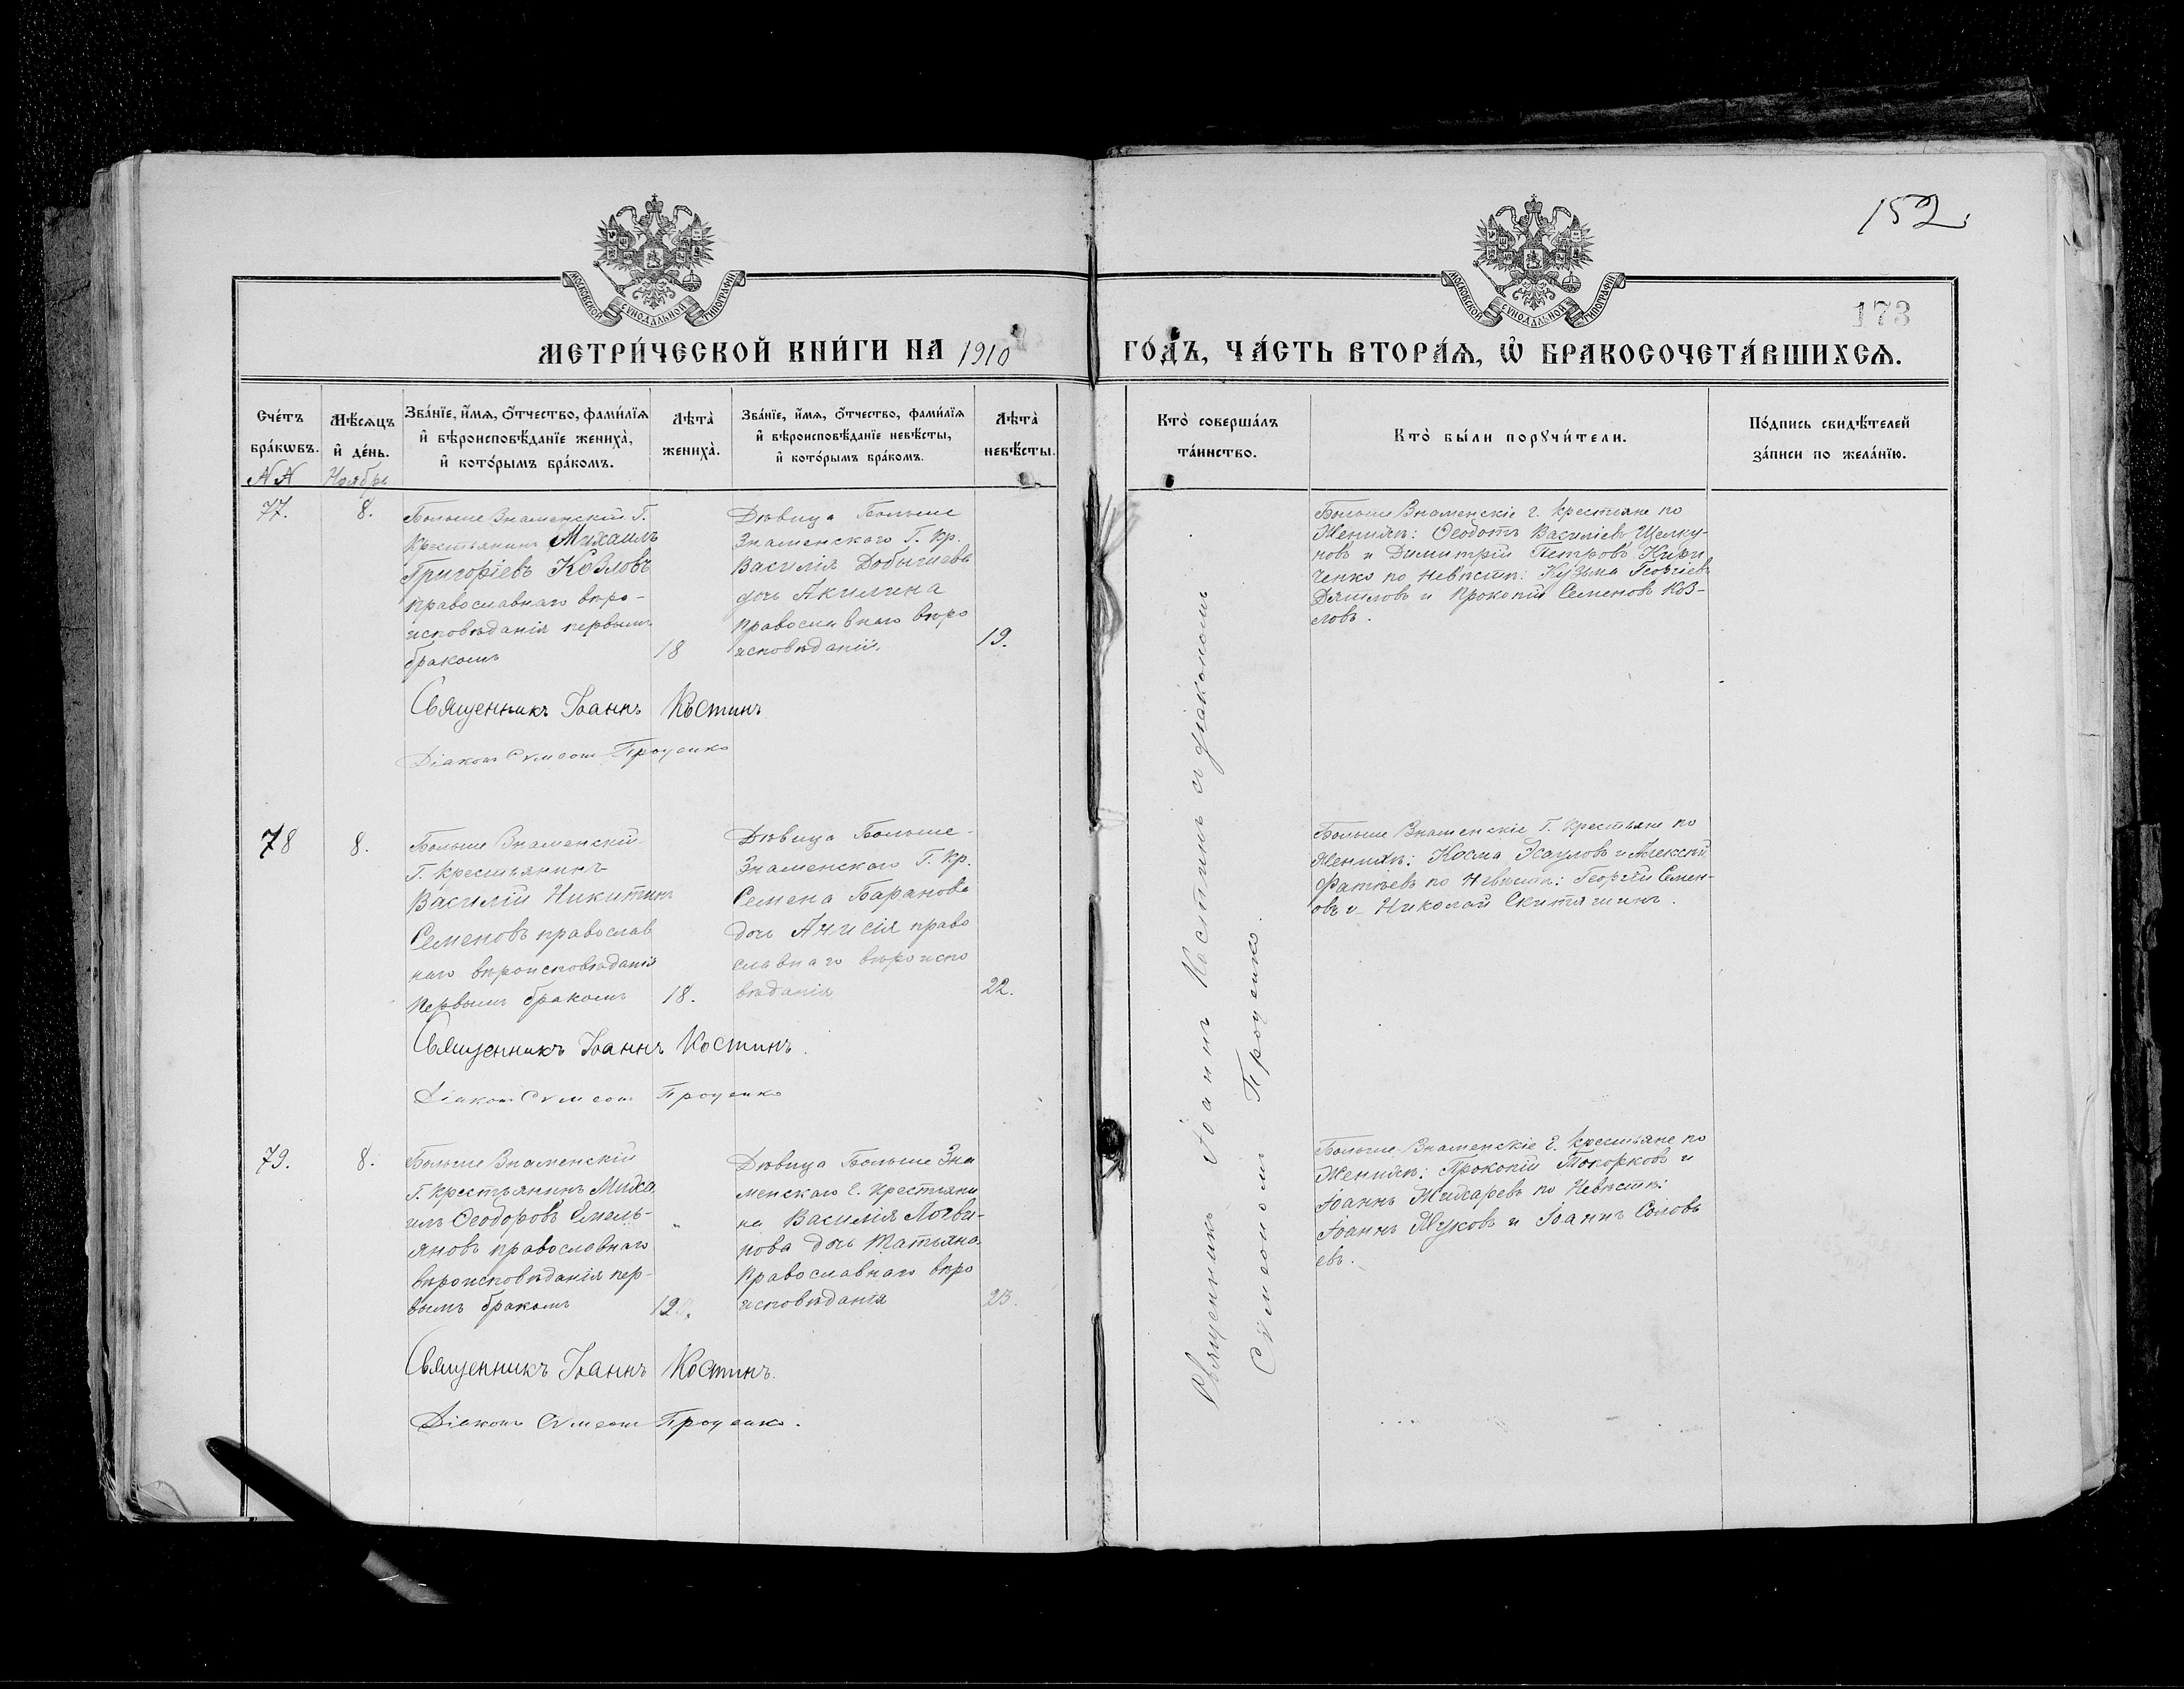 152.
МОСКОВСКОЙ СѴНОДАЛЬНОЙ ТИПОГРАФІИ
МОСКОВСКОЙ СѴНОДАЛЬНОЙ ТИПОГРАФІИ
173
МЕТРИ́ЧЕСКОЙ КНИ́ГИ НА 1910 ГО́ДЪ, ЧА́СТЬ ВТОРА́Ѧ, Ѡ҆ БРАКОСОЧЕТА́ВШИХСѦ.
Сче́тъ бра́кѡвъ.
Мѣ́сѧцъ и҆ де́нь.
Зва́нїе, и҆́мѧ, ѻ҆́тчество, фами́лїѧ
и҆ вѣроисповѣ́данїе жениха̀,
и҆ кото́рымъ бра́комъ.
Лѣта̀ жениха̀.
Зва́нїе, и҆́мѧ, ѻ҆́тчество, фами́лїѧ
и҆ вѣроисповѣ́данїе невѣ́сты,
и҆ кото́рымъ бра́комъ.
Лѣта̀ невѣ́сты.
Кто̀ соверша́лъ
та́инство.
Кто̀ бы́ли порꙋчи́тели.
По́дпись свидѣ́телей
за́писи по жела́нїю.
№№ Ноябрь
77. 8.
Больше Знаменскій Г.
Крестьянинъ Михаилъ
Григоріевъ Козловъ
православнаго вѣро-
исповѣданія первымъ
бракомъ
18
Дѣвица Больше
Знаменскаго Г. Кр.
Василія
дочь Акилина
Православнаго вѣро
исповѣданія.
19.
Больше Знаменскіе г. крестьяне по
Женихѣ: Ѳеодотъ Василіевъ Щелку-
новъ и Димитрій Петровъ Кири
ченко по Невѣстѣ: Кузьма Георгіевъ
и Прокопій Семеновъ Коз-
ловъ.
Священникъ Іоаннъ Костинъ
Діаконъ Сѵмеонъ Проценко
78 8.
Больше Знаменскій
Г. крестьянинъ
Василій Никитинъ
Семеновъ православ
наго вѣроисповѣданія
Первымъ бракомъ
18.
Дѣвица Больше-
Знаменскаго Г. Кр.
Семена Баранова
дочь Анисія право
славнаго вѣроиспо
вѣданія
22.
Больше Знаменскіе Г. крестьяне по
Женихѣ: Косма Эсауловъ и Алексѣй
Фатѣевъ по Невѣстѣ: Георгій Семен-
овъ и Николай
Священникъ Іоаннъ Костинъ.
Діаконъ Сѵмеонъ Проценко
79. 8.
Больше Знаменскій
Г. Крестьянинъ Миха
илъ Ѳеодоровъ Емель-
яновъ православнаго
вѣроисповѣданія пер-
вымъ бракомъ
Дѣвица Больше Зна
менскаго С. Крестьяни
на Василія Логви-
нова дочь Татьяна
Православнаго вѣро
исповѣданія
23.
Больше Знаменскіе г. крестьяне по
Женихѣ: Прокопій Токорковъ и
Іоаннъ Жихаревъ по Невѣстѣ:
Іоаннъ Жуковъ и Іоаннъ Соловь
евъ.
Священникъ Іоаннъ Костинъ.
Діаконъ Сѵмеонъ Проценко.
Священникъ Іоаннъ Костинъ съ діакономъ
Сѵмеономъ Проценко.